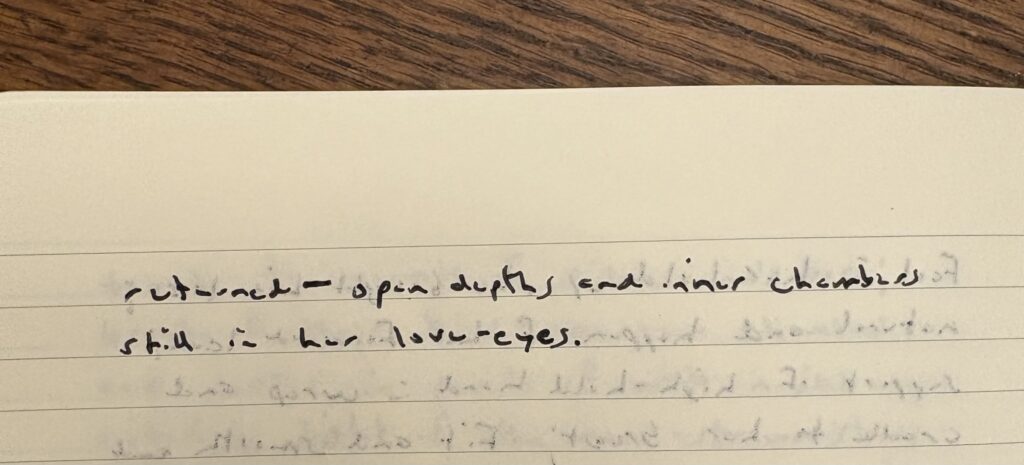 returned – open depths and inner chambers
still in her love-eyes.